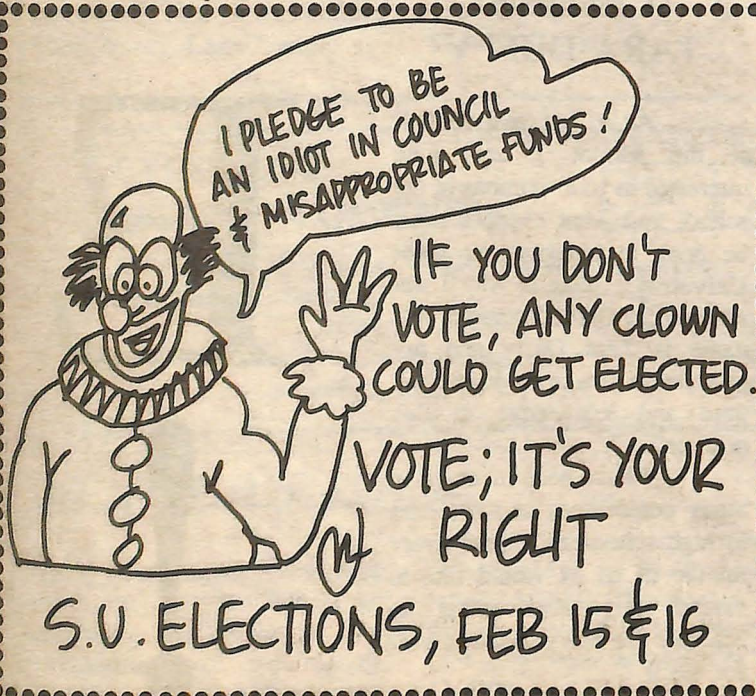 I PLEDGE TO BE
AN IDIOT IN COUNCIL
& MISAPPROPRIATE FUNDS!
IF YOU DON'T
VOTE, ANY CLOWN
COULD GET ELECTED.
VOTE; IT'S YOUR
RIGHT
S.U. ELECTIONS, FEB 15 & 16